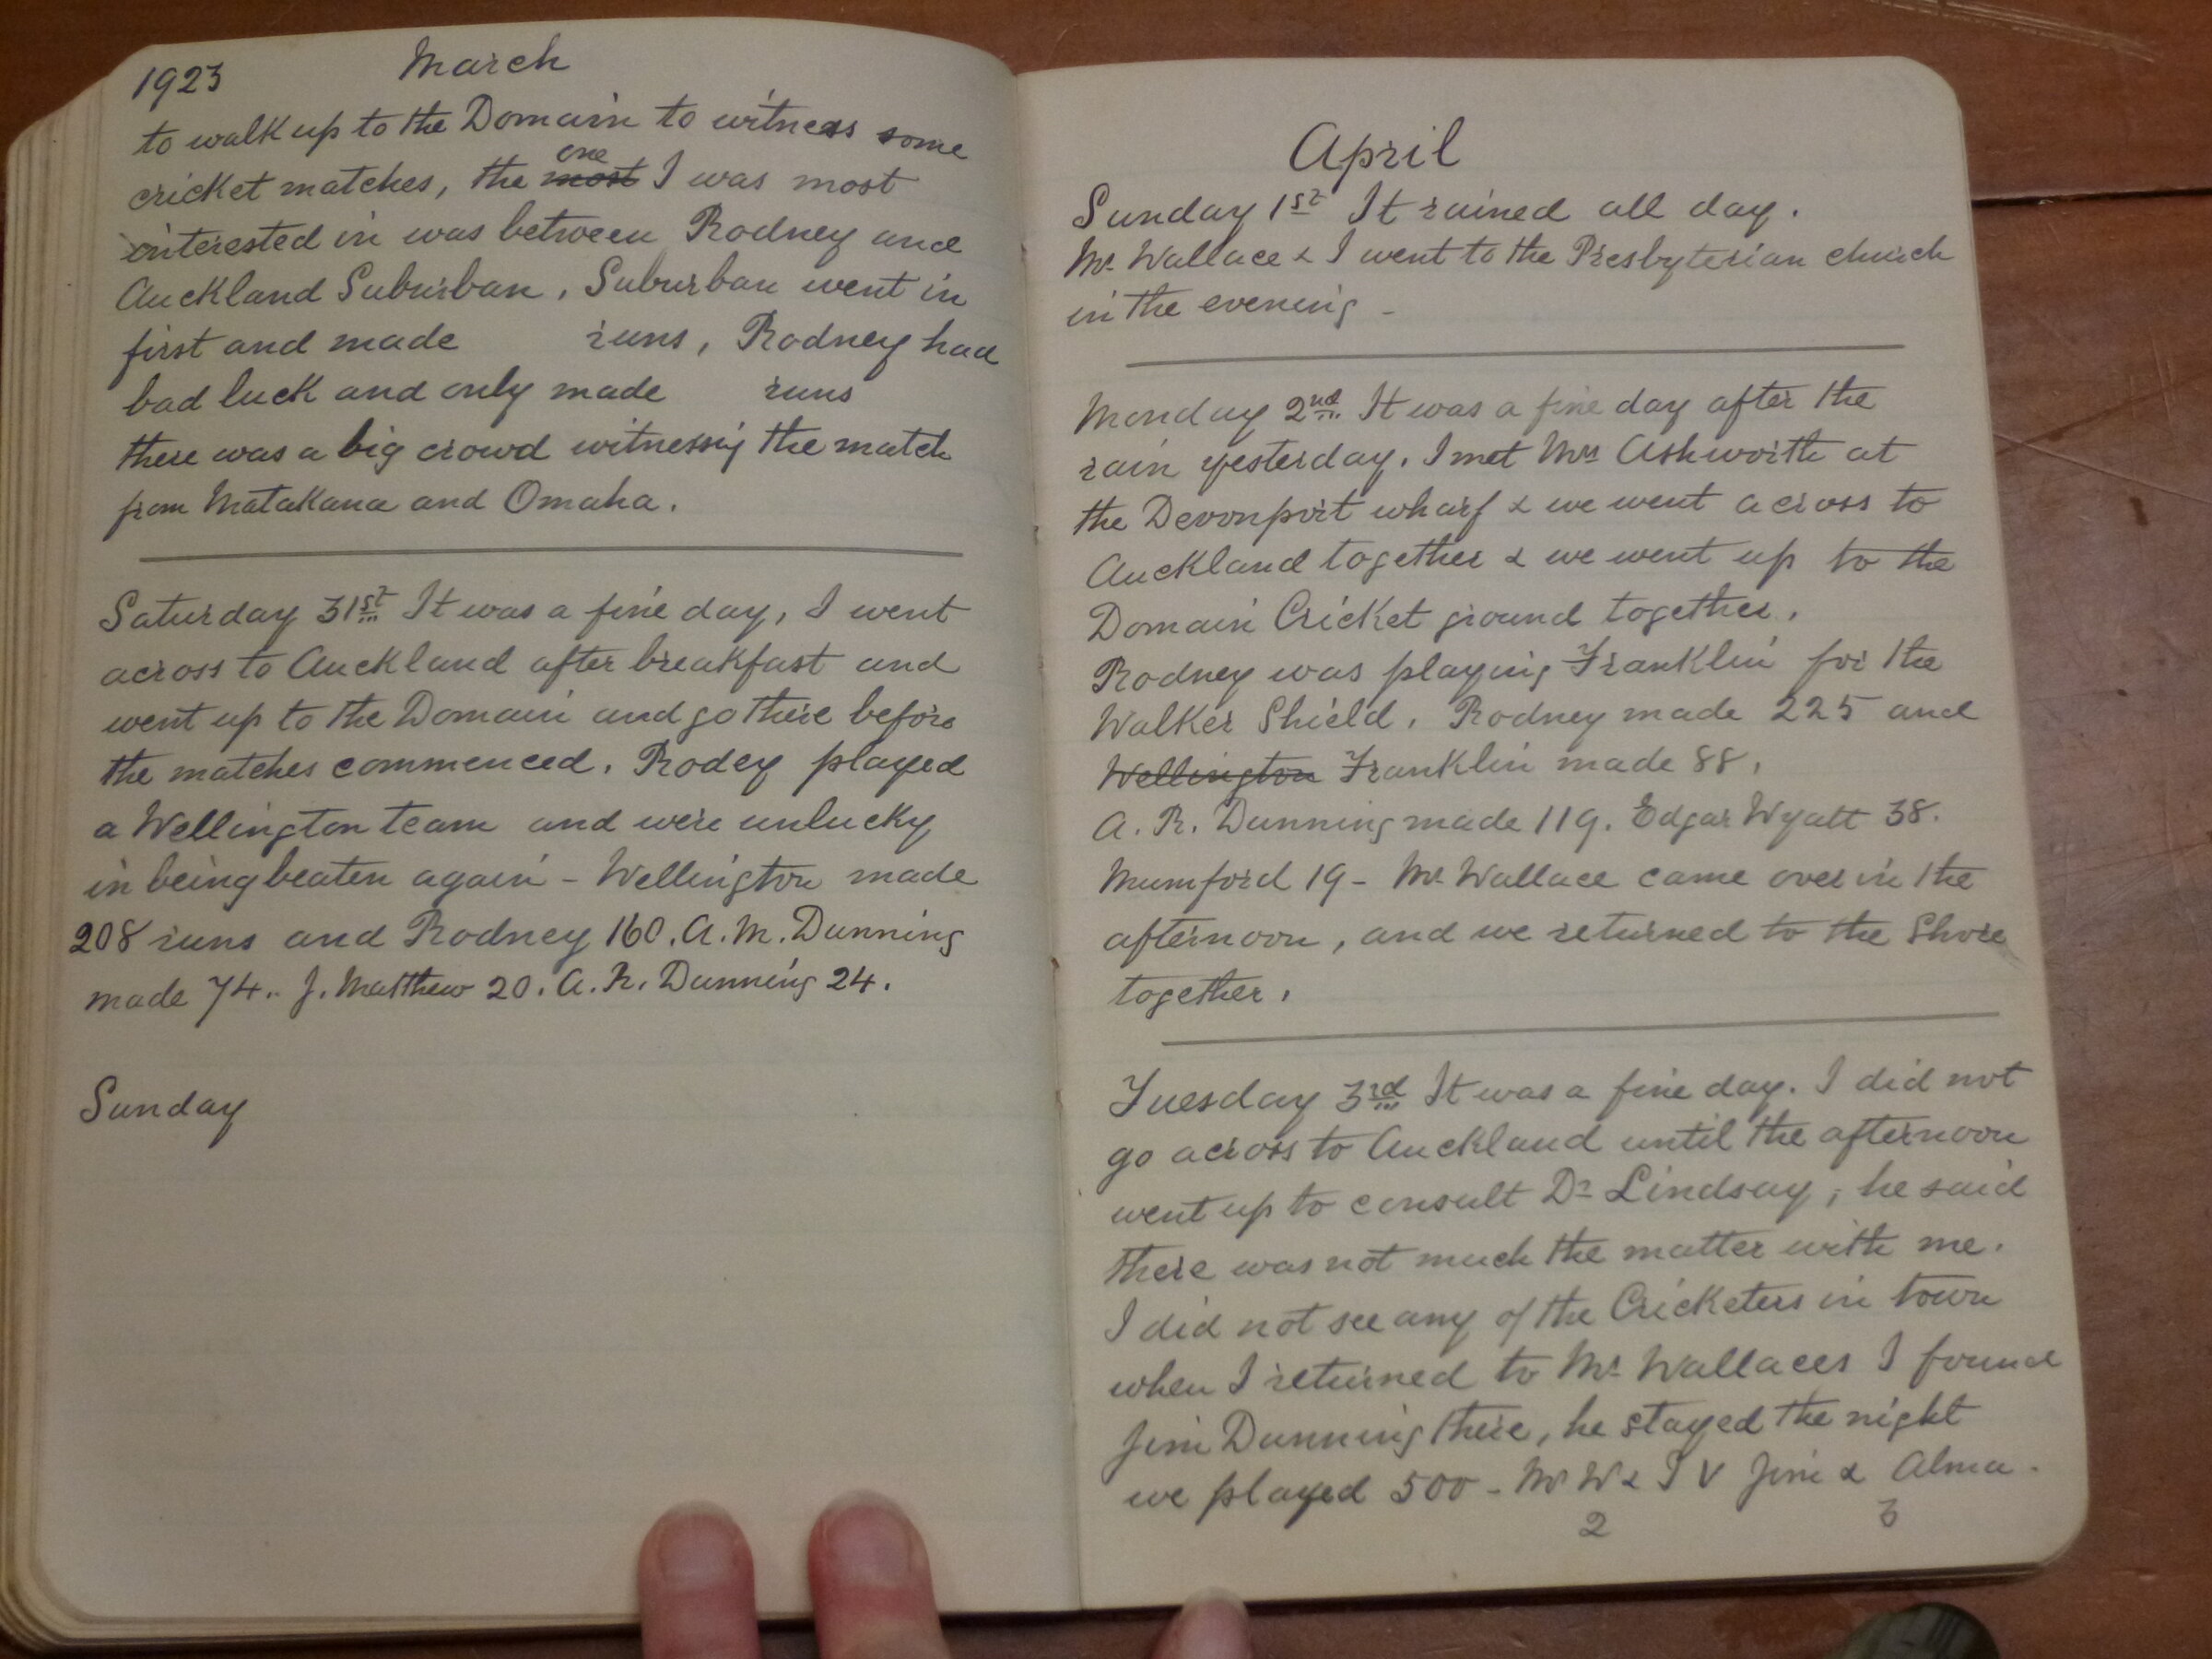 1923 March
to walk up to the Domain to witness some
cricket matches, the most one I was most
interested in was between Rodney and
Auckland Suburban, Suburban went in
first and made runs, Rodney had
bad luck and only made runs
there was a big crowd witnessing the match
from Matakana and Omaha.
Saturday 31st It was a fine day, I went
across to Auckland after breakfast and
went up to the Domain and go there before
the matches commenced. Rodey played
a Wellington team and were unlucky
in being beaten again - Wellington made
208 runs and Rodney 160. A. M. Dunning
made 74. J. Matthew 20. A. R. Dunning 24.
Sunday
April
Sunday 1st It rained all day.
Mr Wallace & I went to the Presbyterian church
in the evening -
Monday 2nd It was a fine day after the
rain yesterday. I met Mrs Ashworth at
the Devonport wharf & we went across to
Auckland together & we went up to the
Domain Cricket ground together.
Rodney was playing Franklin for the
Walker Shield. Rodney made 225 and
Wellington Franklin made 88.
A. R. Dunning made 119. Edgar Wyatt 38.
Mumford 19 - Mr Wallace came over in the
afternoon, and we returned to the Shore
together.
Tuesday 3rd It was a fine day. I did not
go across to Auckland until the afternoon
went up to consult Dr Lindsay, he said
there was not much the matter with me.
I did not see any of the Cricketers in town
when I returned to Mr Wallaces I found
Jim Dunning there, he stayed the night
we played 500 - Mr W & I V Jim & Alma.
2 3